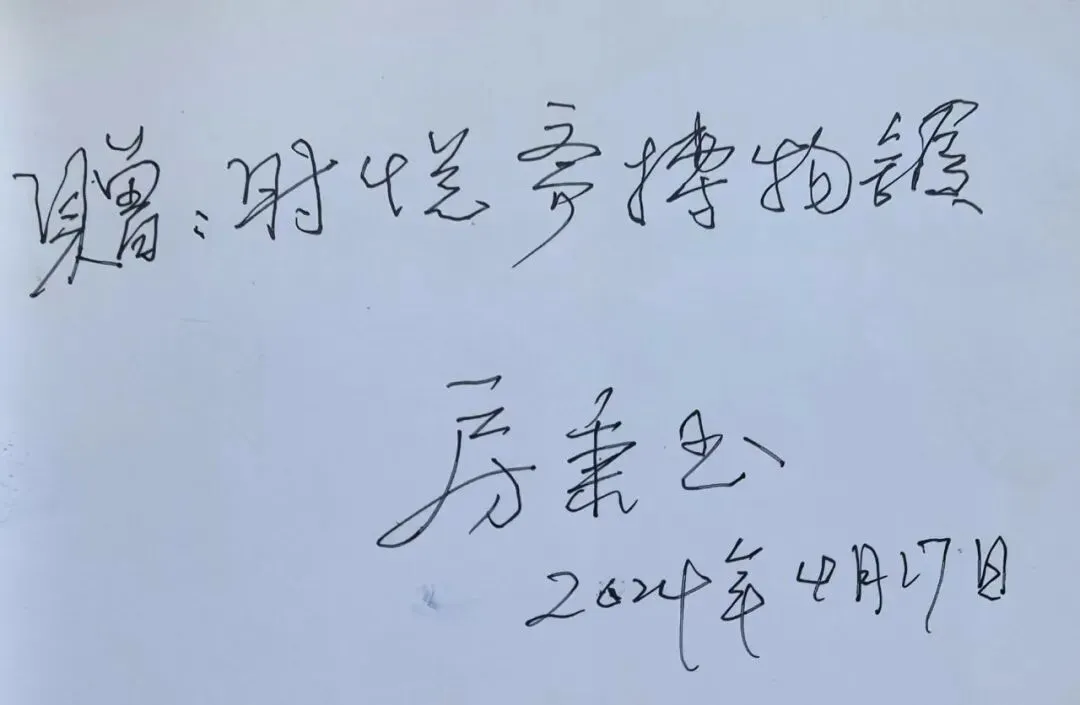 赠:时悦斋博物馆
房秉玉
2024年4月17日